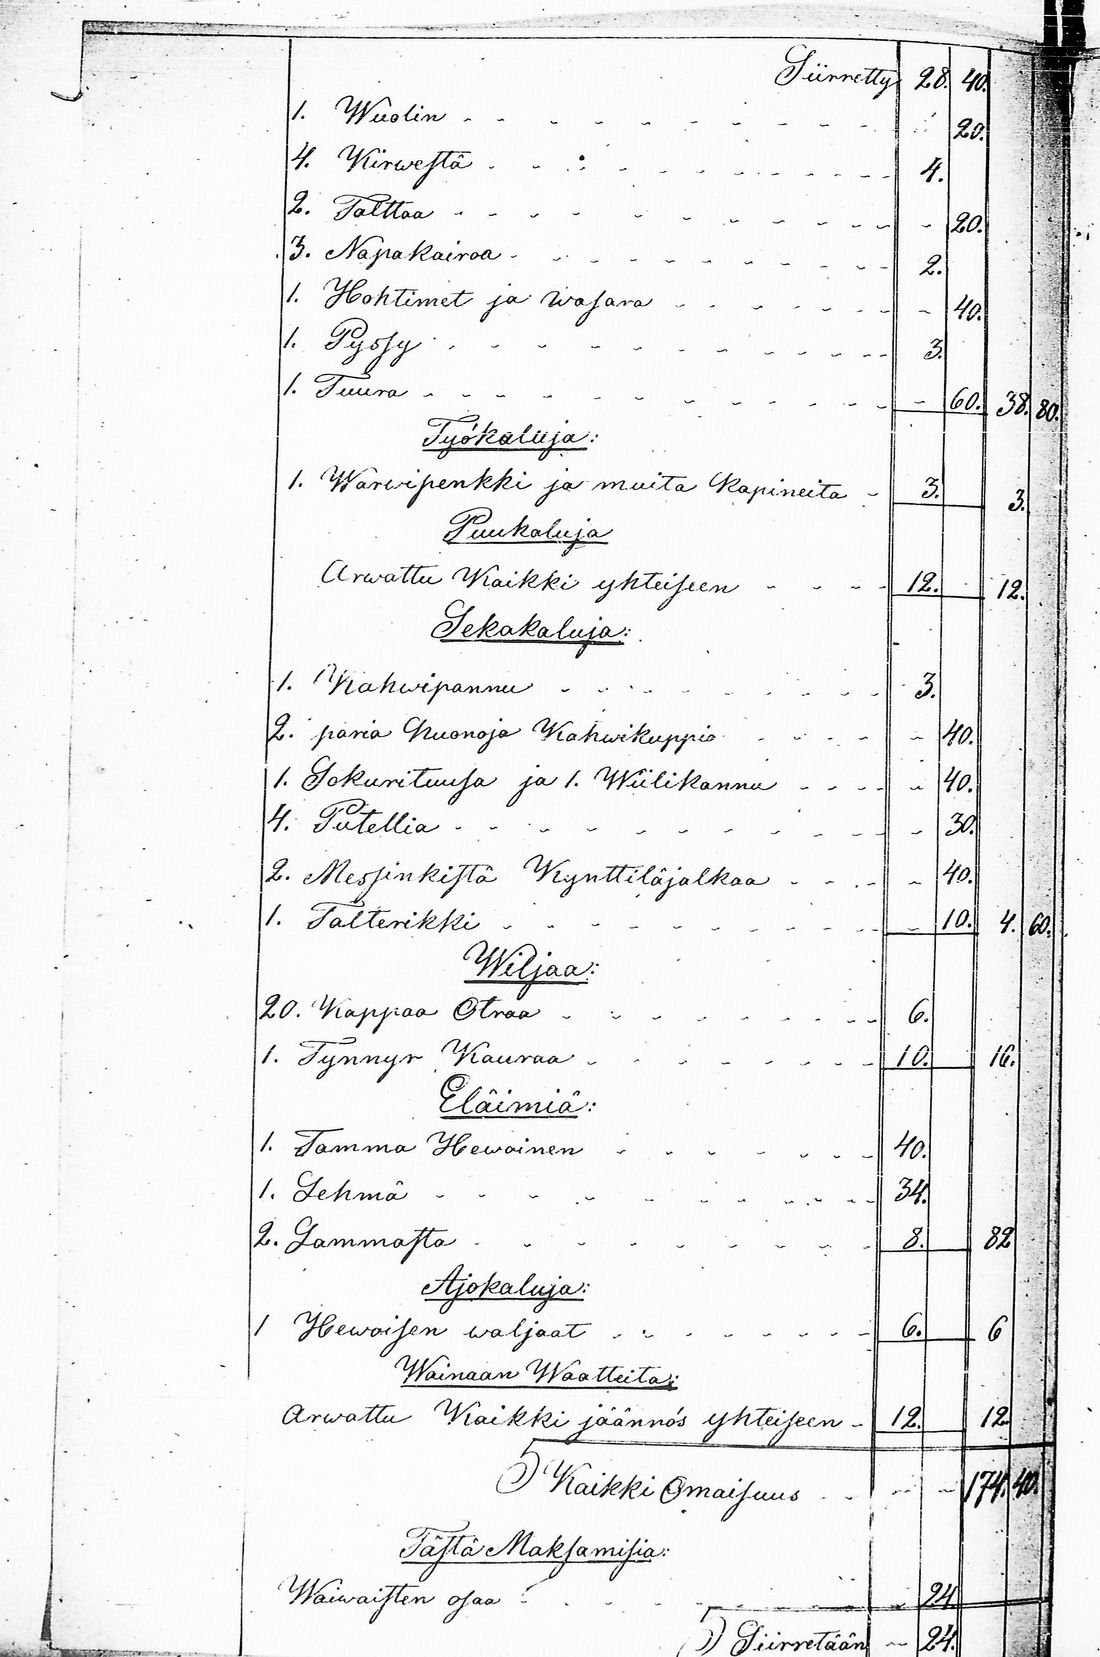 Siirretty 28. 40.
1. Wuolin - - - - - - - - - - 20.
4. Kirwestä - - - - - - - - - 4.
2. Talttaa - - - - - - - - - - 20.
3. Napakairaa - - - - - - - - - 2.
1. Hohtimet ja wasara - - - - - - 40.
1. Pyssy - - - - - - - - - - 3.
1. Tuura - - - - - - - - - - 60. 38. 80.
Työkaluja:
1. Warwipenkki ja muita Kapineita - 3. 3.
Puukaluja
Arwattu Kaikki yhteiseen - - - - 12. 12.
Sekakaluja:
1. Kahwipannu - - - - - - - - 3.
2. paria huonoja Kahwikuppia - - - - - 40.
1. Sokurituusa ja 1. Wiilikannu - - - - 40.
4. Putellia - - - - - - - - - - 30.
2. Messinkistä Kynttiläjalkaa - - - - 40.
1. Talterikki - - - - - - - - - - 10. 4. 60.
Wiljaa:
20. Kappaa Otraa - - - - - - - - 6.
1. Tynnyr Kauraa - - - - - - - 10. 16.
Eläimiä:
1. Tamma Hewoinen - - - - - - - 40.
1. Lehmä - - - - - - - - - - 34.
2. Lammasta - - - - - - - - - 8. 82
Ajokaluja:
1 Hewoisen waljaat - - - - - - - - 6. 6
Wainaan Waatteita:
Arwattu Kaikki jäännös yhteiseen - 12. 12
Kaikki Omaisuus - - - - - 174. 40.
Tästä Maksamisia:
Waiwaisten osaa - - - - - - - - 24
Siirretään - 24.